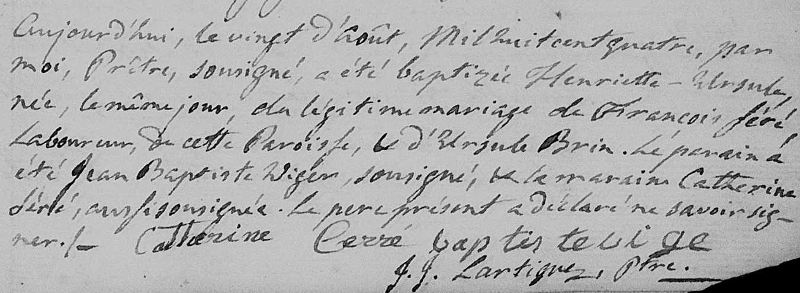 Aujourd'hui, le vingt d'Août, Mil huit cent quatre, par
moi, Prêtre, sousigné, a été baptizée Henriette-Ursule,
née, le même jour, du légitime mariage de François Séré,
Laboureur, de cette Paroisse, & d'Ursule Brin. Le parain a
été Jean Baptiste Viger, sousigné, & la maraine Catherine
Séré, aussi sousignée. Le pere présent a déclaré ne savoir sig-
ner. /- Catherine Cerré baptiste vige
J. J. Lartigue, Ptre.